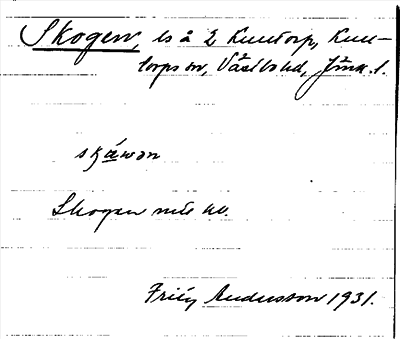 Skogen, ls å 2 Kulltorp, Kull-
torps sn, Västbo hd, Jönk. l.
skåwən
Skogen
Frity Andersson 1931.